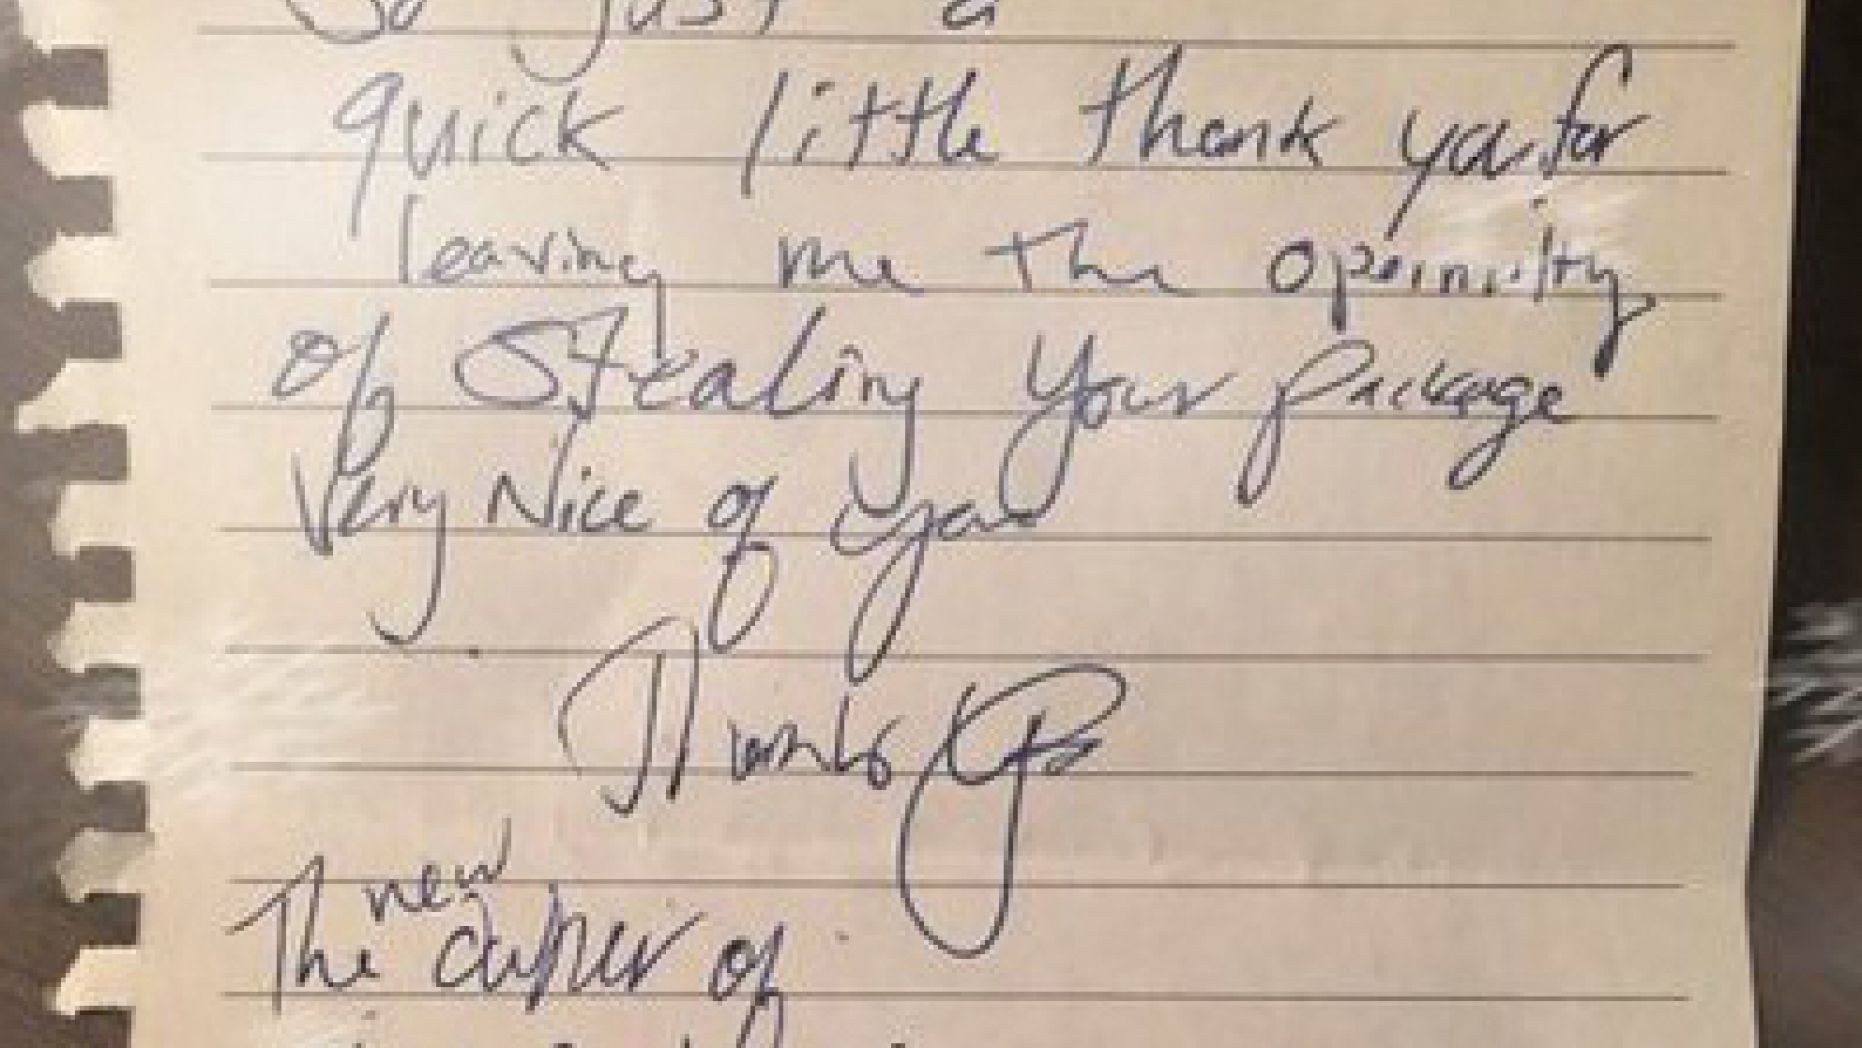 So Just a
quick little thank you for
leaving me the
of Stealing Your package
Very Nice of you
Thanks
new
The owner of